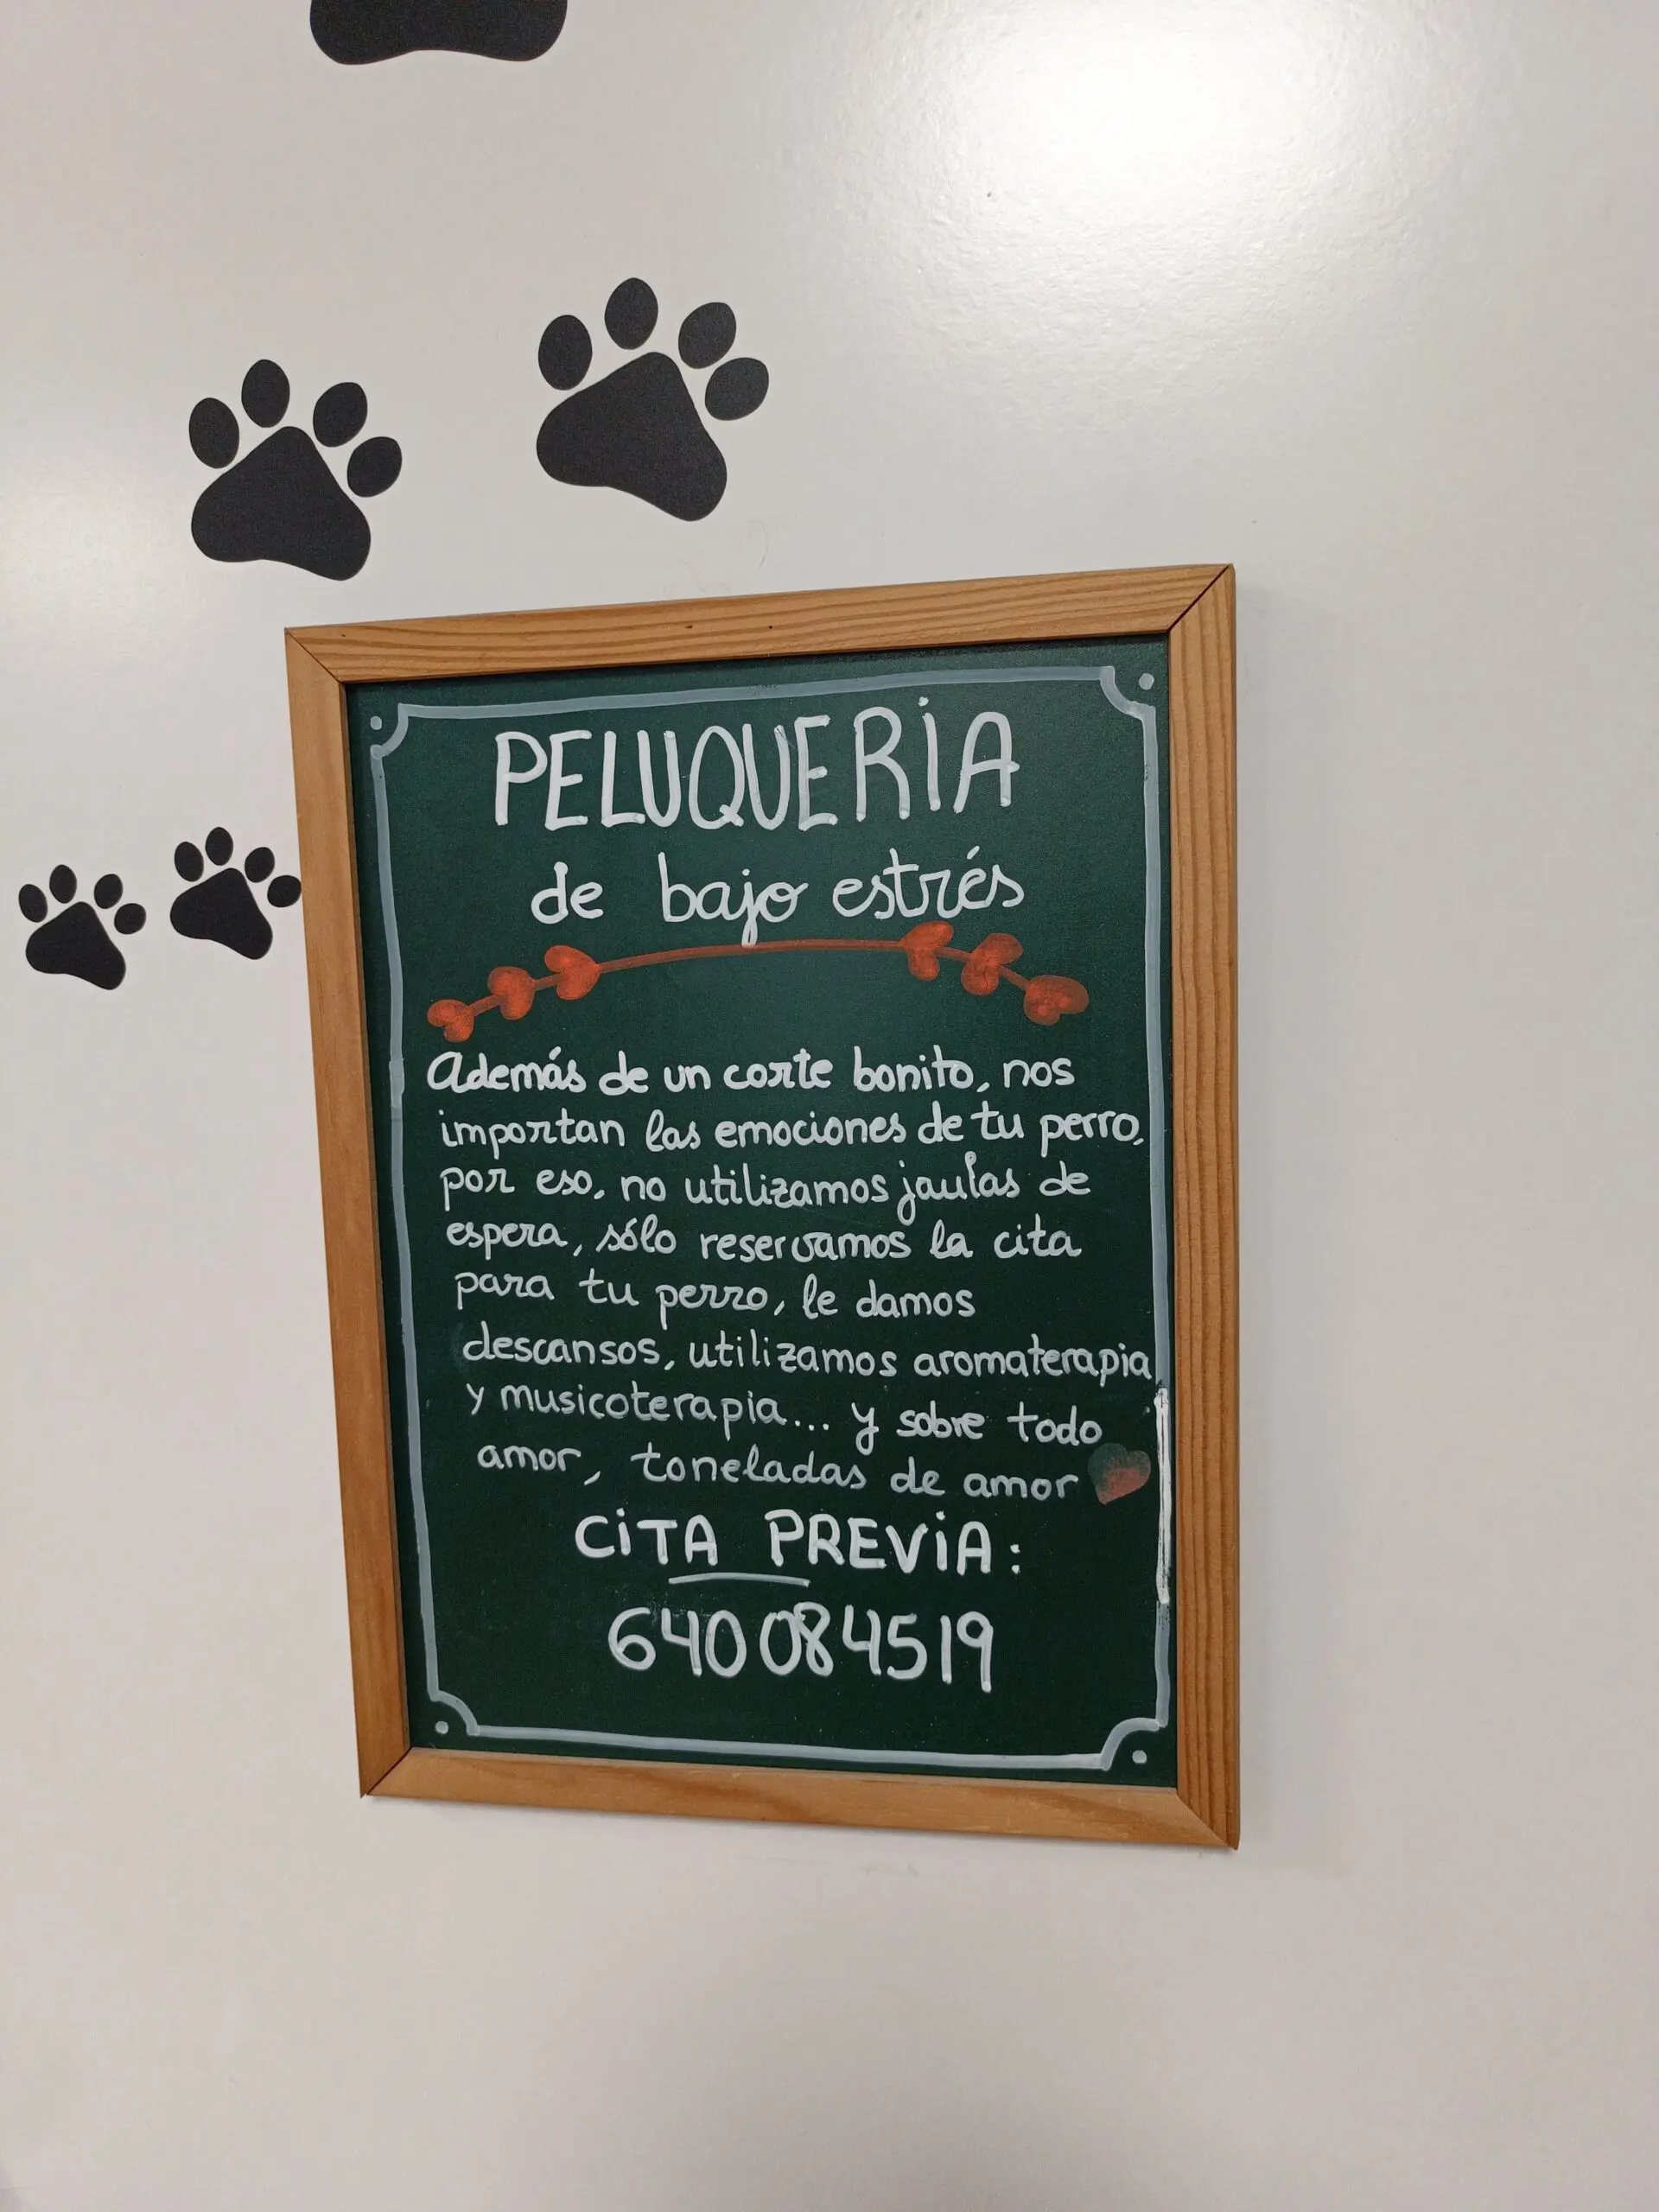 PELUQUERIA
de bajo estrés
Además de un corte bonito, nos
importan las emociones de tu perro,
por eso, no utilizamos jaulas de
espera, sólo reservamos la cita
para tu perro, le damos
descansos, utilizamos aromaterapia
y musicoterapia... y sobre todo
amor, toneladas de amor
CITA PREVIA:
640084519